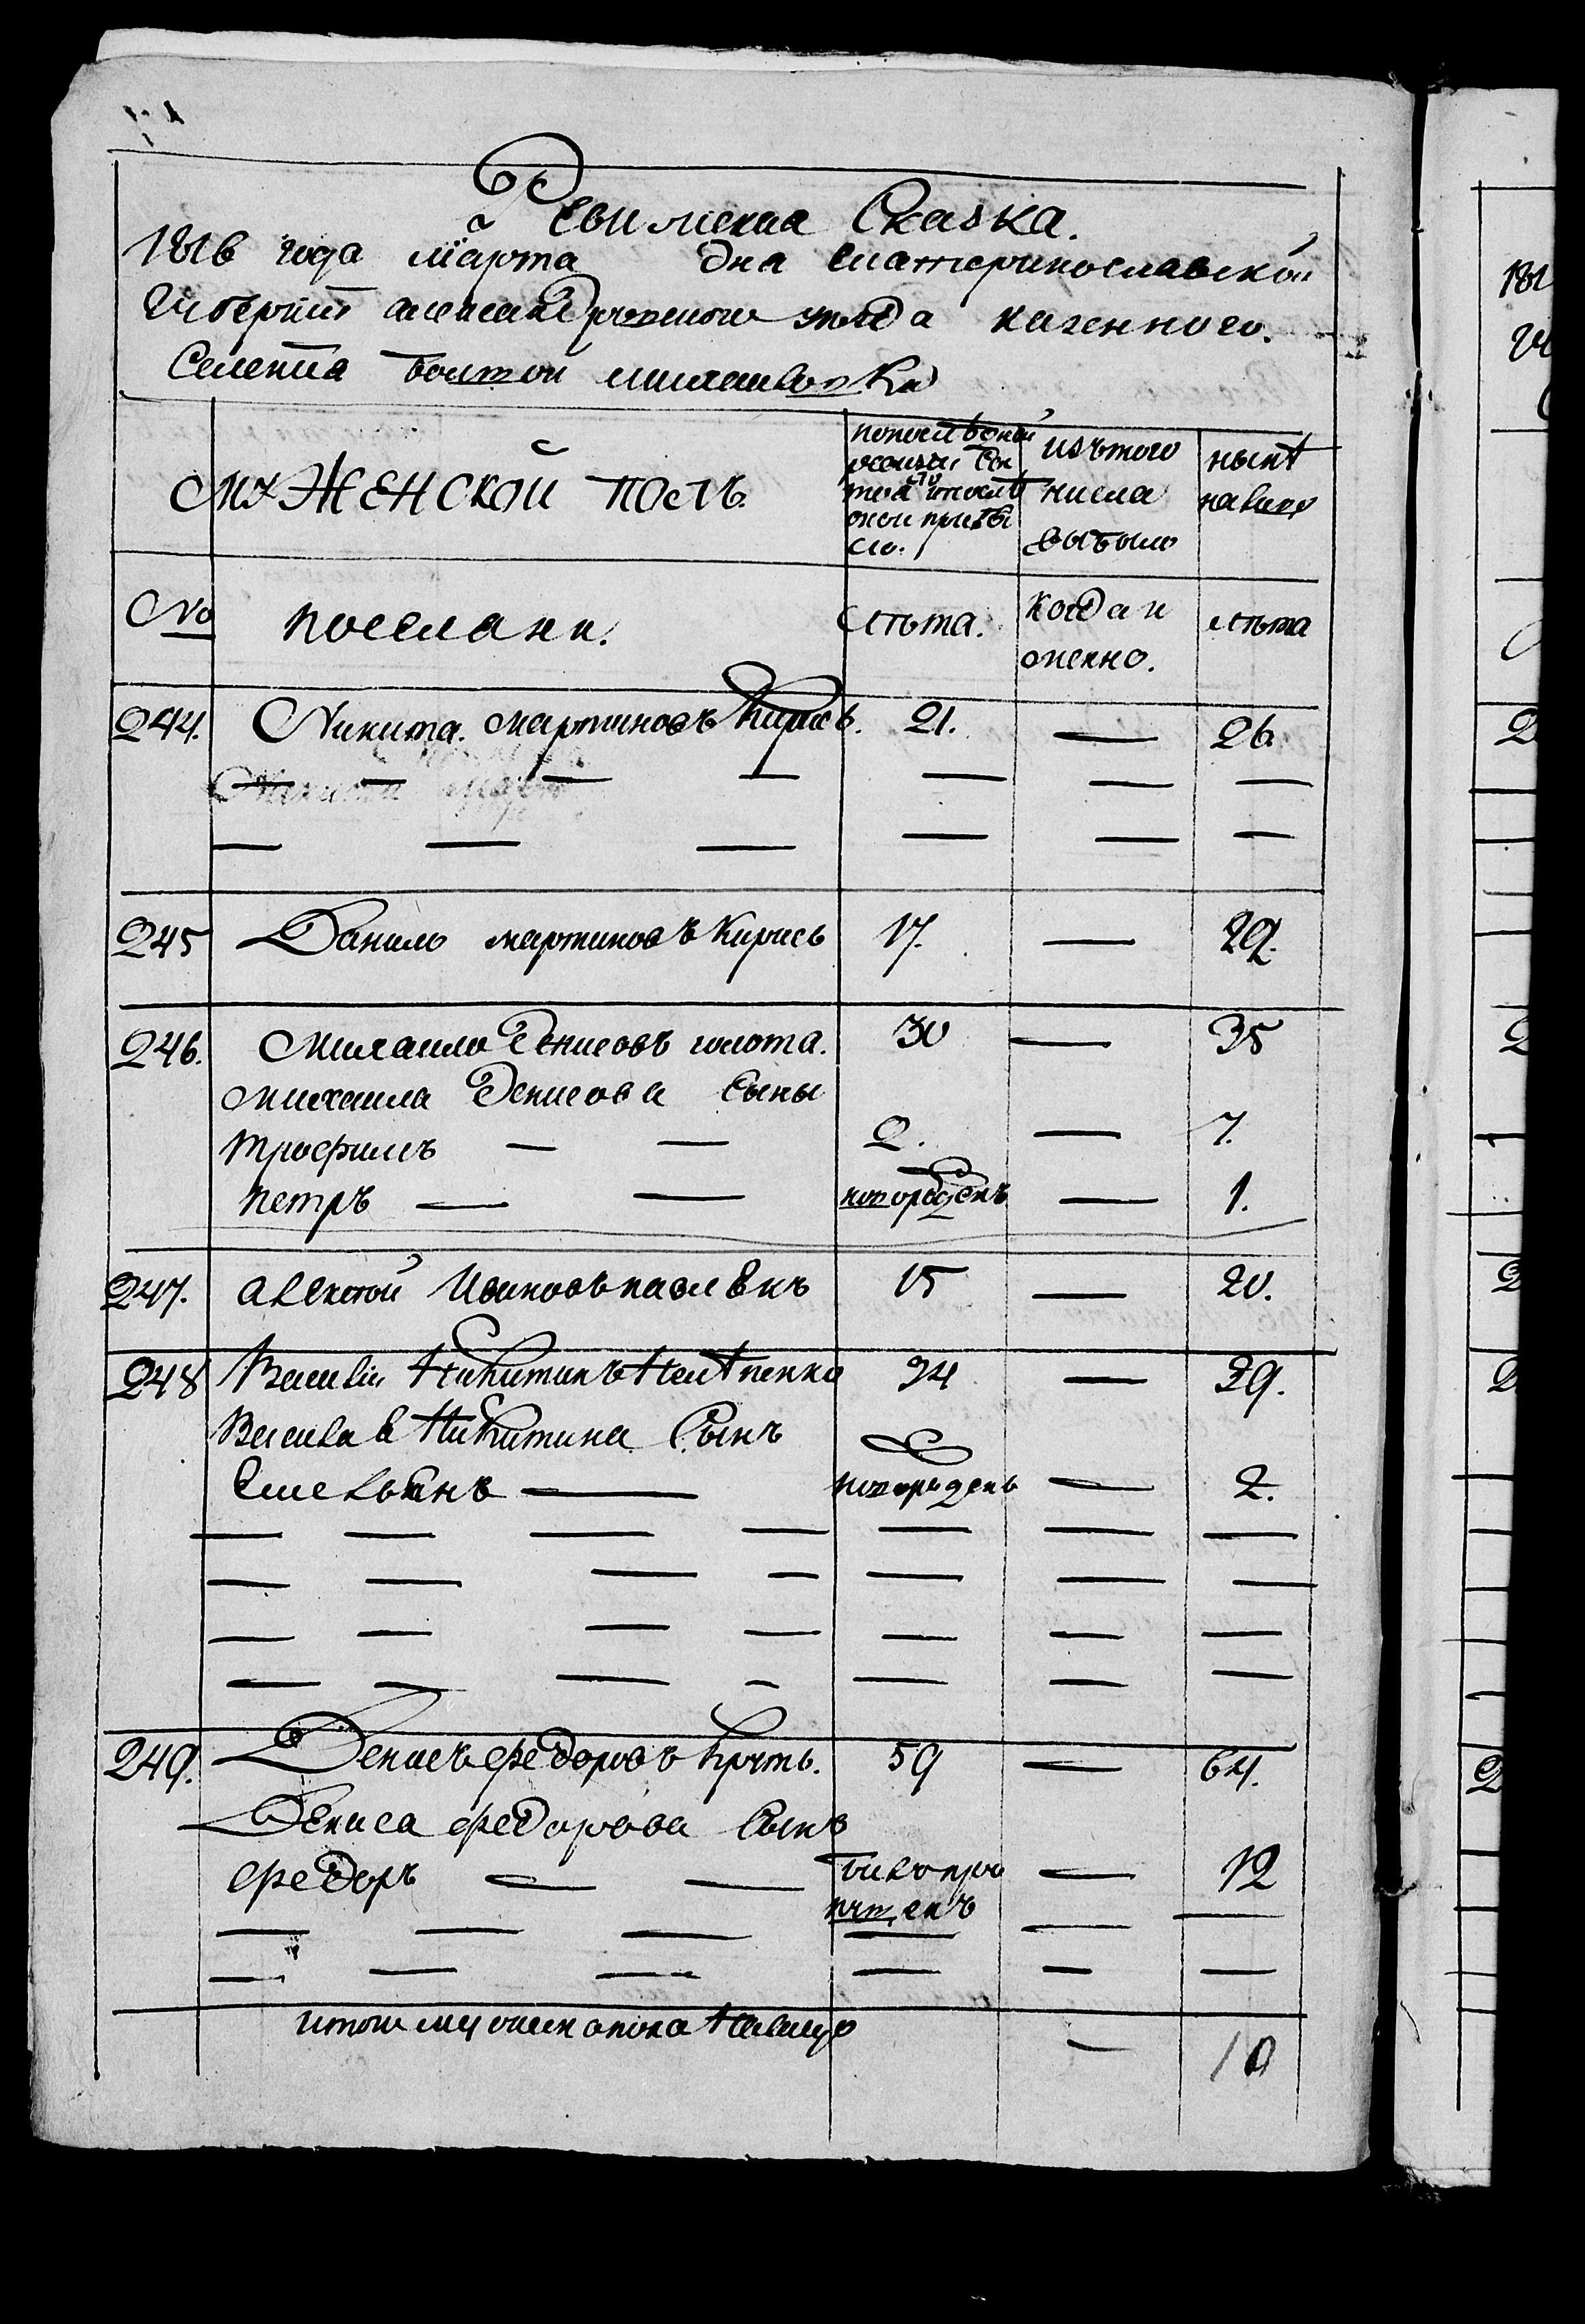 Ревижская Сказка.
1816 года марта дна Екатеринославской
Губернiи александрiйскаго уезда казенного.
Селенiя болшой михайловки
МУЖЕНСКОЙ ПОЛЪ.
попоследней
ревизии со
стоя и после
оной прибы
ло.
изътого
числа
выбыло
нынѣ
налицо
No
поселани.
лѣта.
когда и
оженно.
лѣта
244. Никита мартиновъ Кирисъ. 21. — 26
245 Данило мартиновъ Кирись 17. — 22.
246. Михаило Денисовъ голота. 30 — 35
Михаила Денисова сыны
трофимъ — — 2. — 7.
петръ — — новорожденъ — 1.
247. алексей Ивановъ павленк 15 — 20.
248 Василiй Никитинъ 24 — 29.
Василя Никитина Сынъ
Емельянъ — новорожденъ — 2.
249. Денисъ федоровъ 59 — 64.
Дениса федорова Сынъ
федоръ — — билъ про — 12
пущенъ
итого мужеска пола налицо — 10